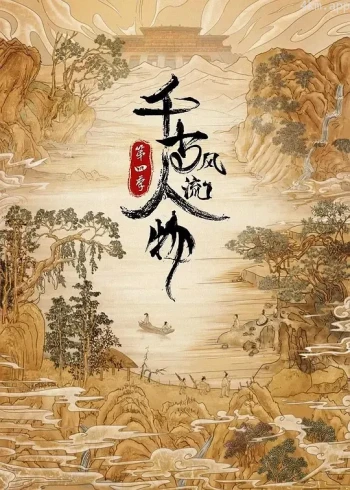 4kw.app
千古风流人物
第四季